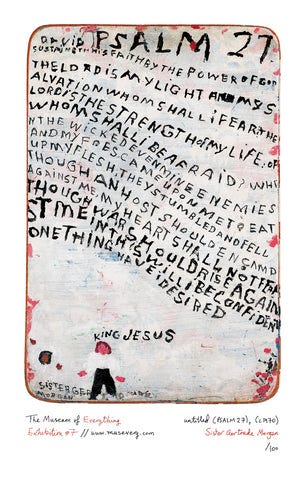 DAVID PSALM 27
SUSTAINETH HIS FAITH BY THE POWER OF GOD
THE LORD IS MY LIGHT AND MY S
ALVATION WHOM SHALL I FEAR THE
LORD IS THE STRENGTH OF MY LIFE. OF
WHOM SHALL I BE AFRAID? WHE
N THE WICKED EVEN MINE ENEMIES
AND MY FOES CAME UPON ME TO EAT
UP MY FLESH, THEY STUMBLED AND FELL
THOUGH AN HOST SHOULD ENCAMP
AGAINST ME, MY HEART SHALL NOT FEAR
THOUGH WAR SHOULD RISE AGAIN
ST ME IN THIS WILL I BE CONFIDENT
ONE THING HAVE I DESIRED
KING JESUS
SISTER GERTRUDE
MORGAN
The Museum of Everything
Exhibition #7 // www.musevery.com
untitled (PSALM 27), (c1970)
Sister Gertrude Morgan
/100